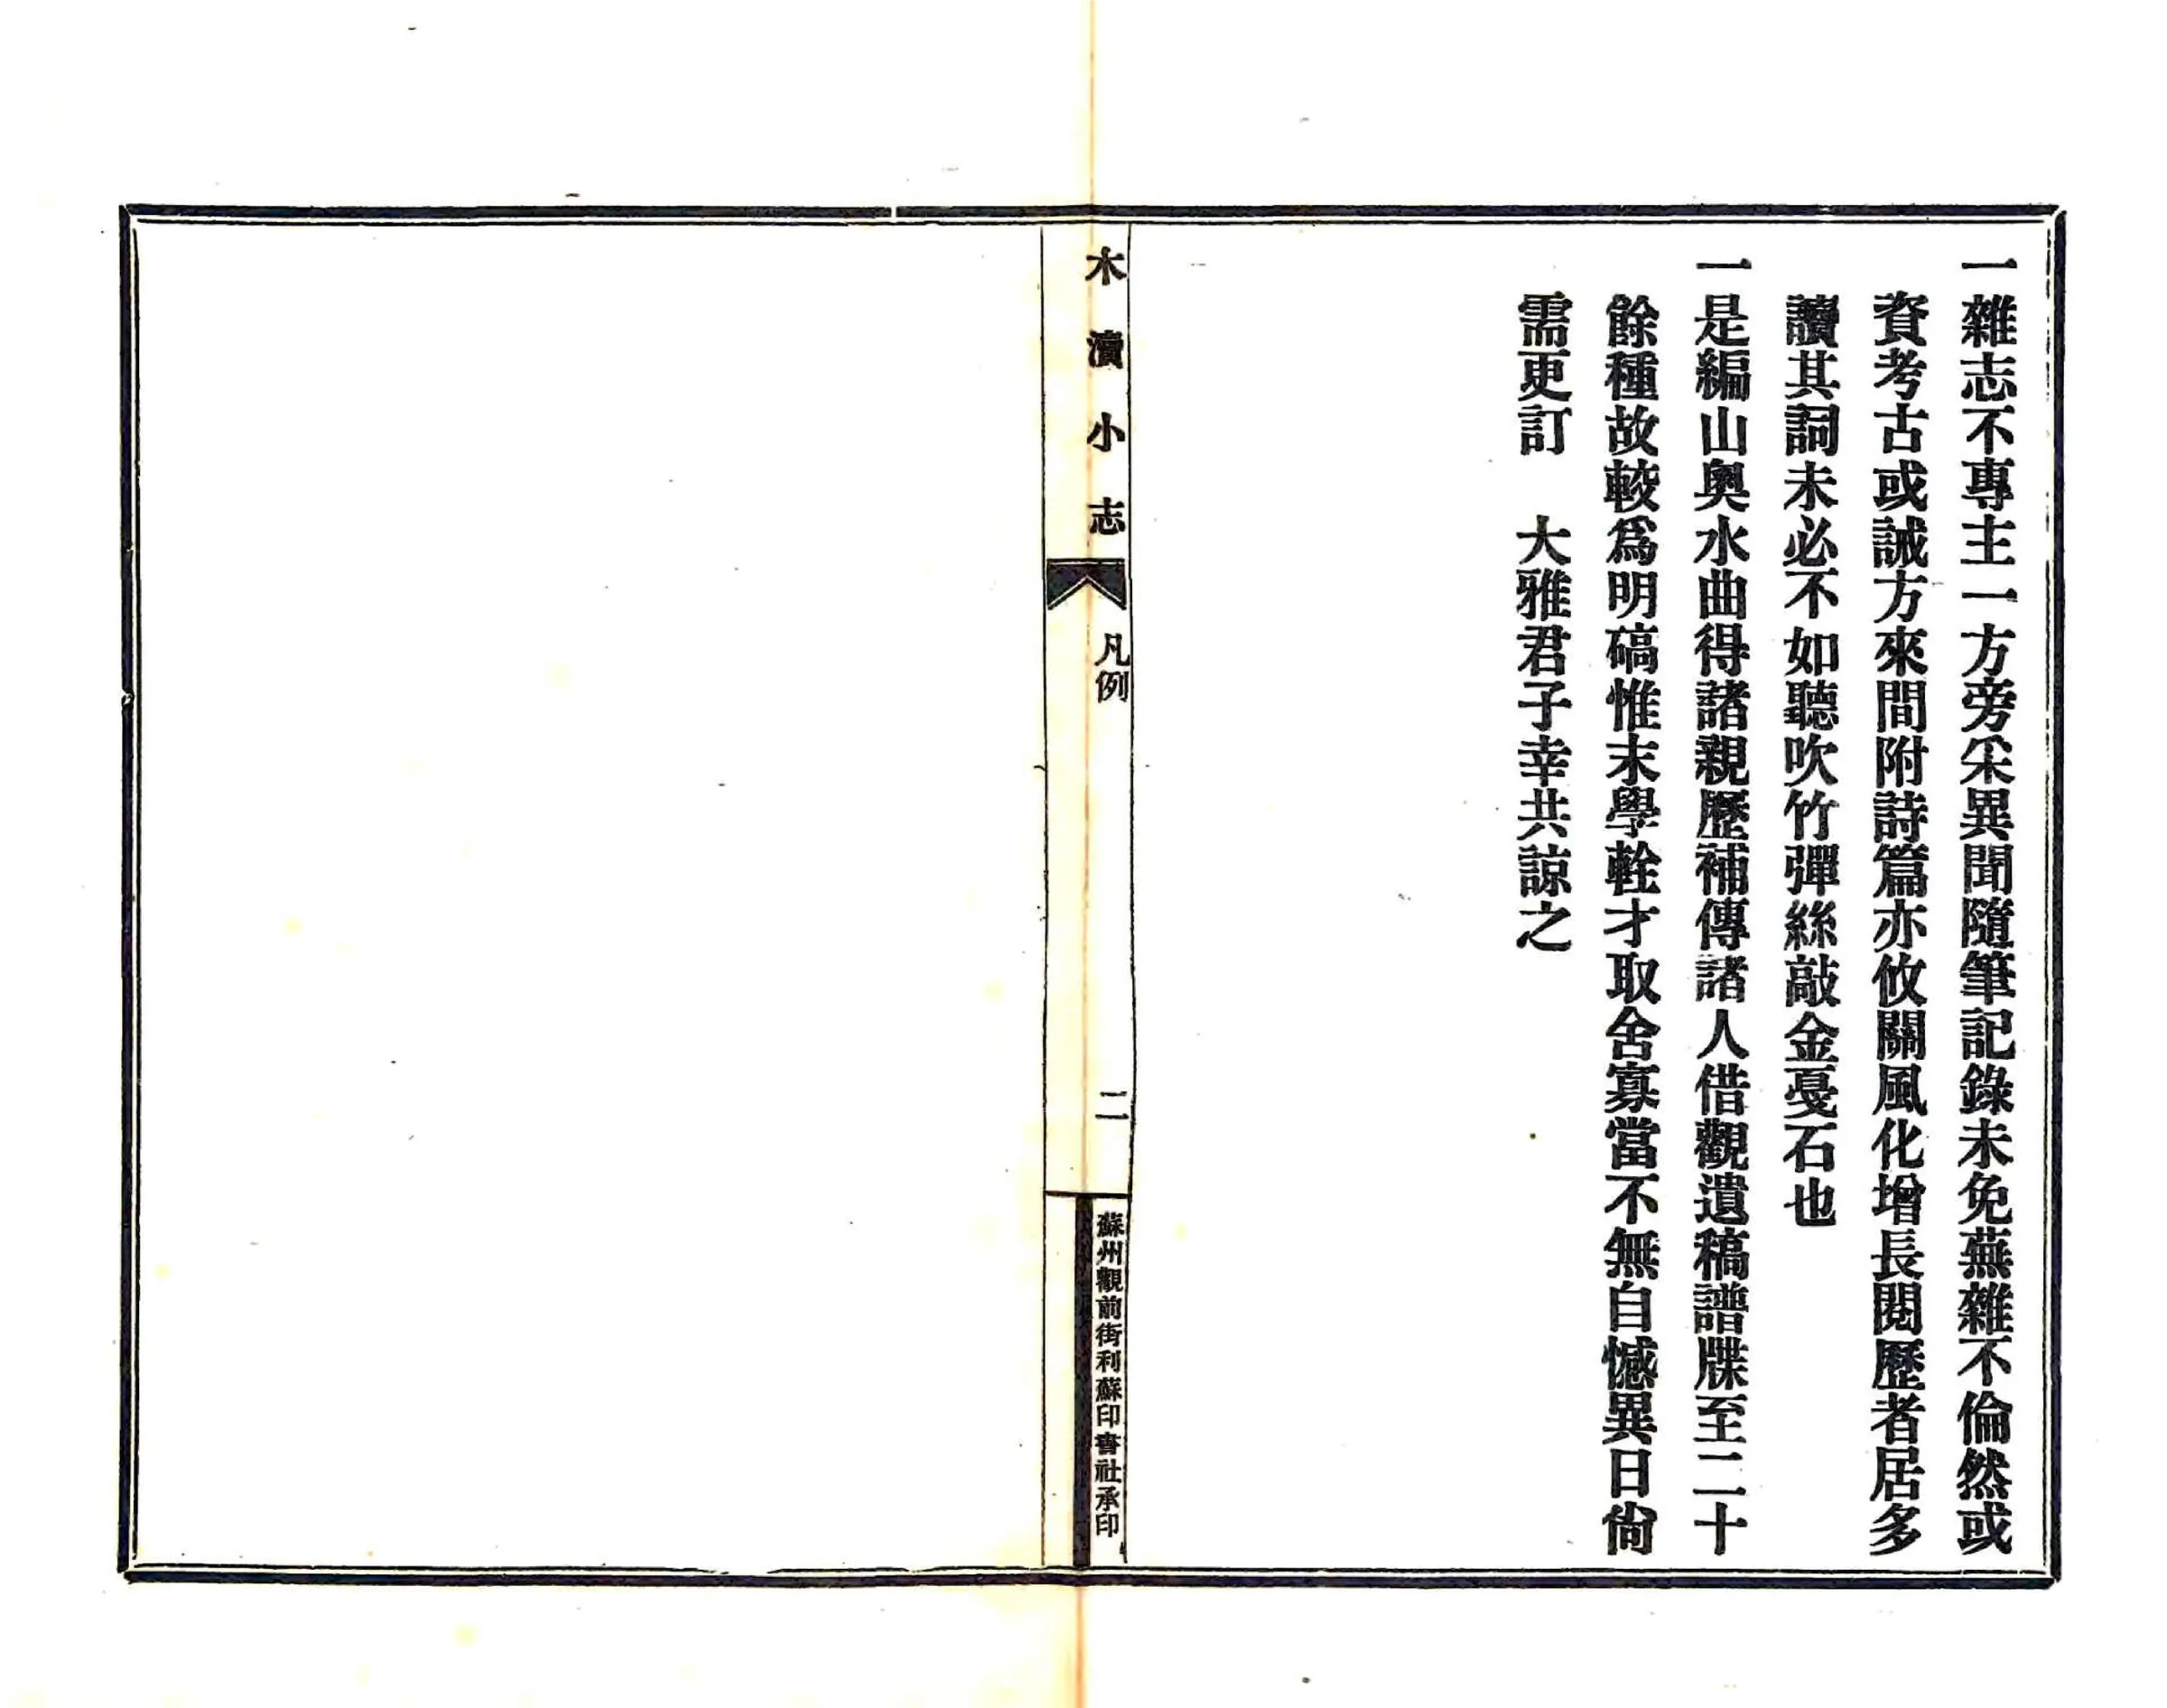 一雜志不專主一方旁采異聞隨筆記錄未免蕪雜不倫然或
資考古或誡方來間附詩篇亦攸關風化增長閱歷者居多
讀其詞未必不如聽吹竹彈絲敲金戛石也
一是編山奧水曲得諸親歷補傳諸人借觀遺稿譜牒至二十
餘種故較爲明碻惟末學輇才取舍寡當不無自憾異日尙
需更訂　大雅君子幸共諒之
木瀆小志
凡例
二
蘇州觀前街利蘇印書社承印